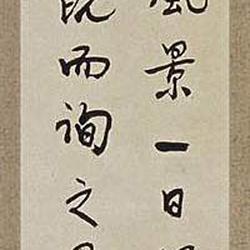 風景一日
既而詢之